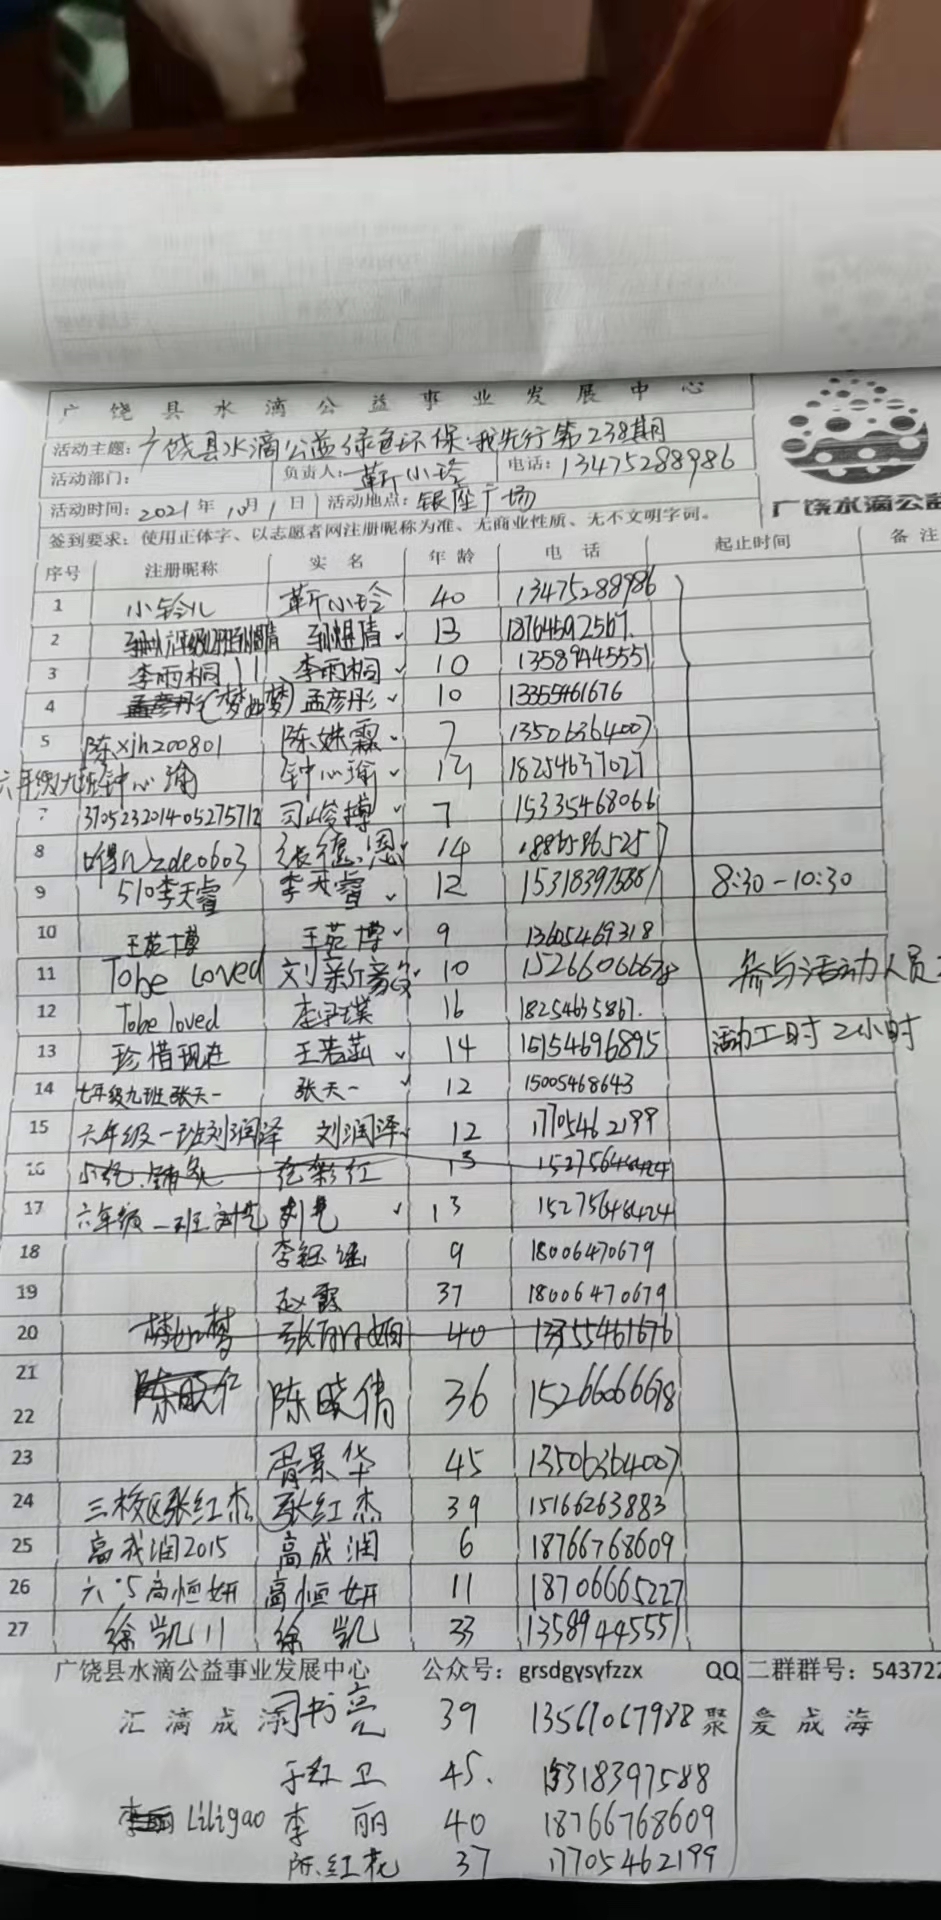 广饶县水滴公益事业发展中心
活动主题：广饶县水滴公益绿色环保·我先行第238期
活动部门： 负责人：靳小玲 电话：13475288986
活动时间：2021年10月1日 活动地点：银座广场
广饶水滴公益
签到要求：使用正体字、以志愿者网注册昵称为准、无商业性质、无不文明字词。
序号 注册昵称 实名 年龄 电话 起止时间 备注
1 小铃儿 靳小玲 40 13475288986
2 13 18764592567.
3 李雨桐11 李雨桐 10 13589445551
4 孟彦彤(梦如梦) 孟彦彤 10 13355461676
5 陈xjh200801 陈姝霖 7 13506364007
六年级九班钟心瑜 钟心瑜 12 18254637027
7 370523201405275712 司峻搏 7 15335468066
8 张德恩 14 18865865257
9 510李天睿 李天睿 12 15318397588 8:30-10:30
10 王苑博 王苑博 9 13605469318
11 Tobe Loved 刘新 10 15266066678 参与活动人员
12 Tobe loved 16 18254635867.
13 珍惜现在 王若菡 14 15154696895 活动工时2小时
14 七年级九班张天一 张天一 12 15005468643
15 六年级一班刘润泽 刘润泽 12 17705462199
16 13 15275648424
17 六年级一班 13 15275648424
18 李钰涵 9 18006470679
19 赵霞 37 18006470679
20 梦如梦 40 13355461676
21 陈晓倩 36 15266066678
22
23 胥景华 45 13506364007
24 三校区张红杰 张红杰 39 15166263883
25 高成润2015 高成润 6 18766768609
26 六·5高恒妍 高恒妍 11 18706665227
27 徐凯11 徐凯 33 13589445551
广饶县水滴公益事业发展中心 公众号：grsdgysyfzzx QQ二群群号：543722
汇滴成 司书亮 39 13561067988 聚爱成海
于红卫 45. 15318397588
Liligao 李丽 40 18766768609
陈红花 37 17705462199